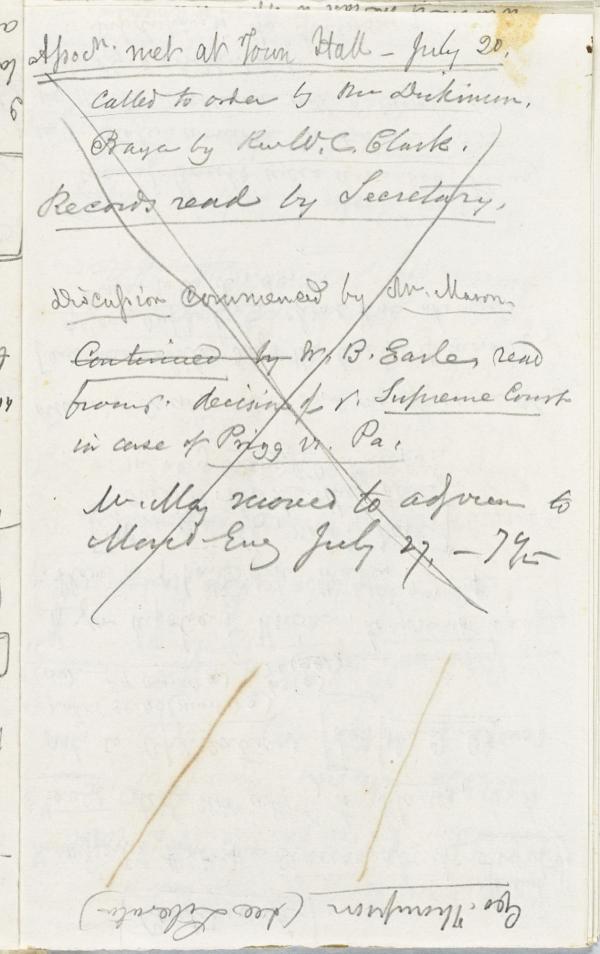 Assocn. met at Town Hall - July 20.
Called to order by Mr Dickinson.
Prayer by Rev W. C. Clark.
Records read by Secretary.
Discussion commenced by Mr. Mason.
Continued by W. B. Earle, read
from decision of Supreme Court
in case of Prigg vs. Pa.
Mr. May moved to adjourn to
Mond Eve July 27, - 7
Geo. Thompson (see Liberator)